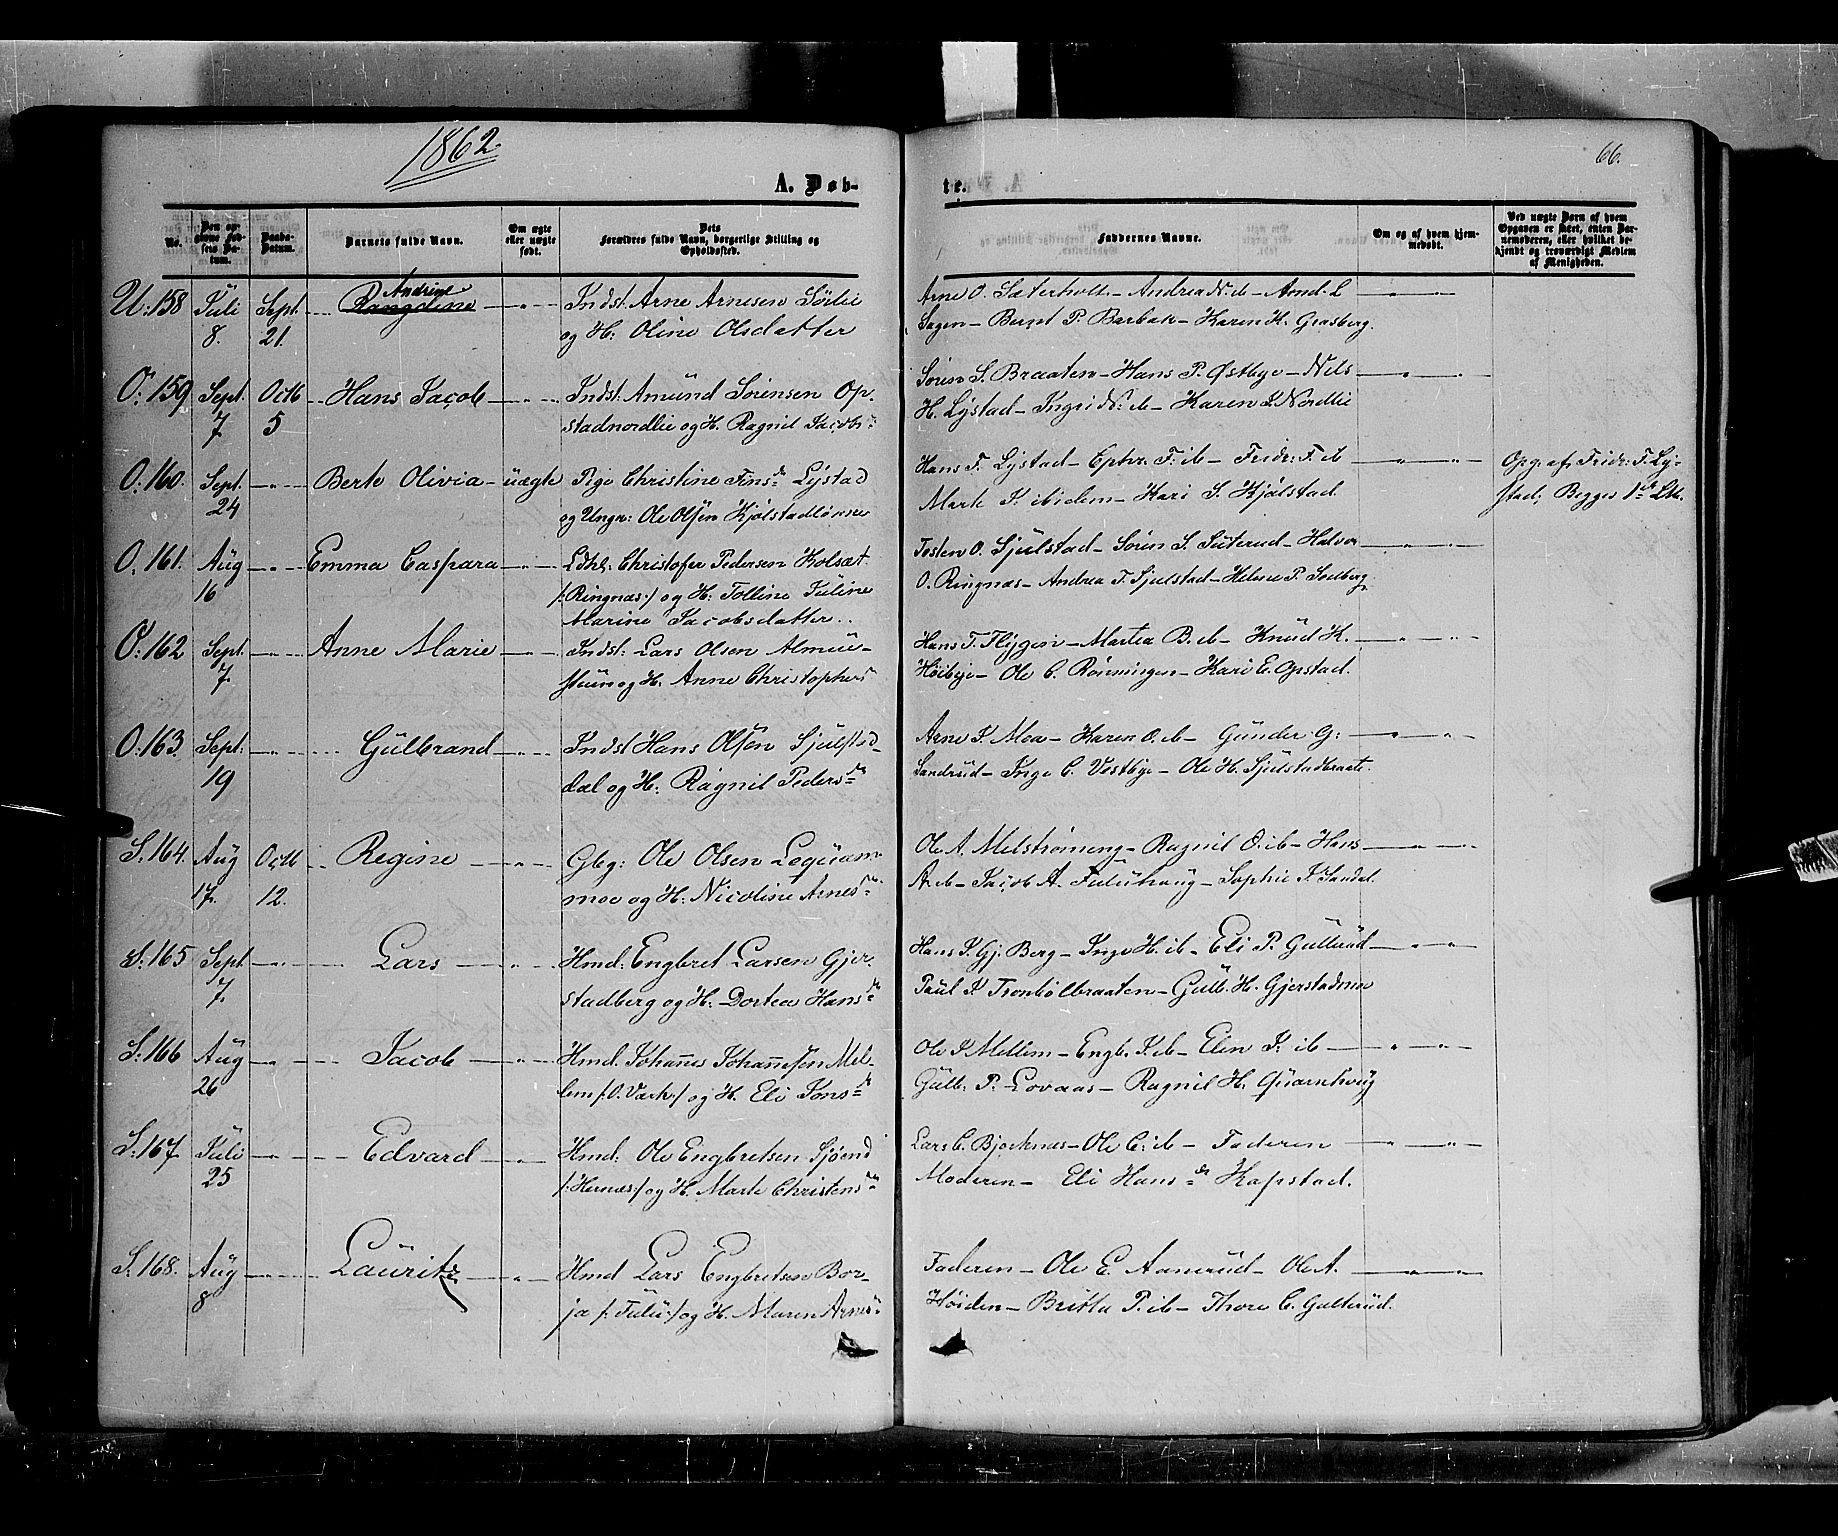 1862.
66.
A. Døb-
te.
No.
Den op-
givne Fød-
sels Da-
tum.
Daabs-
Datum.
Barnets fulde Navn.
Om ægte
eller uægte
født.
Dets
Forældres fulde Navn, borgerlige Stilling og
Opholdssted.
Faddernes Navne.
Om og af hvem hjem-
medøbt.
Ved uægte Børn af hvem
Opgaven er skeet, enten Bar-
nemoderen, eller hvilket be-
kjendt og troværdigt Medlem
af Menigheden.
U: 158 Juli Sept. Andrine Indst. Arne Arnesen Sørlie
8. 21. og H: Oline Olsdatter
Arne O. Sæterholt - Andrea N. ib - Amd. L
Sagen - Bernt P. Barbak - Karen H. Grasberg.
O: 159 Sept. Octb Hans Jacob Indst: Amund Sørensen Op-
7. 5 stadnordlie og H. Ragnil Jacobs
Søren S. Braaten - Hans P. Østbye - Nils
H. Lystad - Ingri N. ib - Karen L Nordlie
O: 160. Sept. Berte Olivia - uægte Pige Christine Finsd. Lystad
24 og Ungk: Ole Olsen Kjølstad
Hans F. Lystad - Ephr. F. ib - Fridr: F. ib
Marte ibidem - Kari S. Kjølstad.
Opg. af Fridr: F. Ly-
stad; Begges 1ste Lm.
O. 161. Aug Emma Caspara Christofer Pedersen Kolsæt
16 /: Ringnæs :/ og H: Tolline Juline
Marine Jacobsdatter.
Tosten O. Sjulstad - Søren S. - Halvor
O. Ringnæs - Andrea T. Sjulstad - Helene P. Sodberg
O: 162 Sept. Anne Marie Indst: Lars Olsen
7. og H. Anne Christophers
Hans T. Flygen - Martea B. ib - Knud K.
Høibye - Ole C. Rønningen - Kari E. Opstad.
O: 163. Sept: Gulbrand Indst Hans Olsen Sjulstad-
19 dal og H: Ragnil Pedersd.
Arne Moa - Karen O. ib - Gunder G:
Sandrud - Inge C. Vestbye - Ole H. Sjulstadbraate.
S: 164. Aug Octb Regine Gbrg: Ole Olsen
17. 12. moe og H: Nicoline Arnesd.
Ole A. Melstrømeng - Ragnil O. ib - Hans
A. ib - Jacob A. - Sophie Sandal
S: 165 Sept Lars Hmd: Engbret Larsen Gjer-
7. stadberg og H: Dortea Hansd.
Hans Gj. Berg - Inge H. ib - Eli P. Gulterud
Paul Tronbølbraaten - Gulb. H. Gjerstadmoen
S: 166 Aug Jacob Hmd. Johanes Johannesen Mel-
26 lem /: O. Værk :/ og H. Eli Jonsd.
Ole Mellem - Engb. ib - Elen ib
Gulb: P. Lovaas - Ragnil H. Quarnhoug
S: 167. Juli Edvard Hmd: Ole Engbretsen Sjøend
25 /: Hernæs :/ og H. Marte Christensd.
Lars C. Bjerknæs - Ole C: ib - Faderen
Moderen - Eli Hansd. Kapstad.
S: 168. Aug Lauritz Hmd Lars Engbretsen Bor-
8 ja /: Fulu :/ og H. Maren Arnes
Faderen - Ole E. Aamrud - Ole A.
Høiden - Britta P. ib - Thore C. Gulterud.